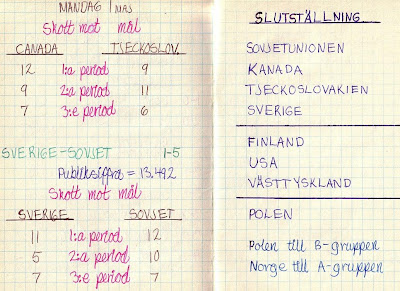 MÅNDAG 1 MAJ
Skott mot mål
CANADA TJECKOSLOV.
12 1:a period 9
9 2:a period 11
7 3:e period 6
SVERIGE-SOVJET 1-5
Publiksiffra = 13.492
Skott mot mål
SVERIGE SOVJET
11 1:a period 12
5 2:a period 10
7 3:e period 7
SLUTSTÄLLNING
SOVJETUNIONEN
KANADA
TJECKOSLOVAKIEN
SVERIGE
FINLAND
USA
VÄSTTYSKLAND
POLEN
Polen till B-gruppen
Norge till A-gruppen